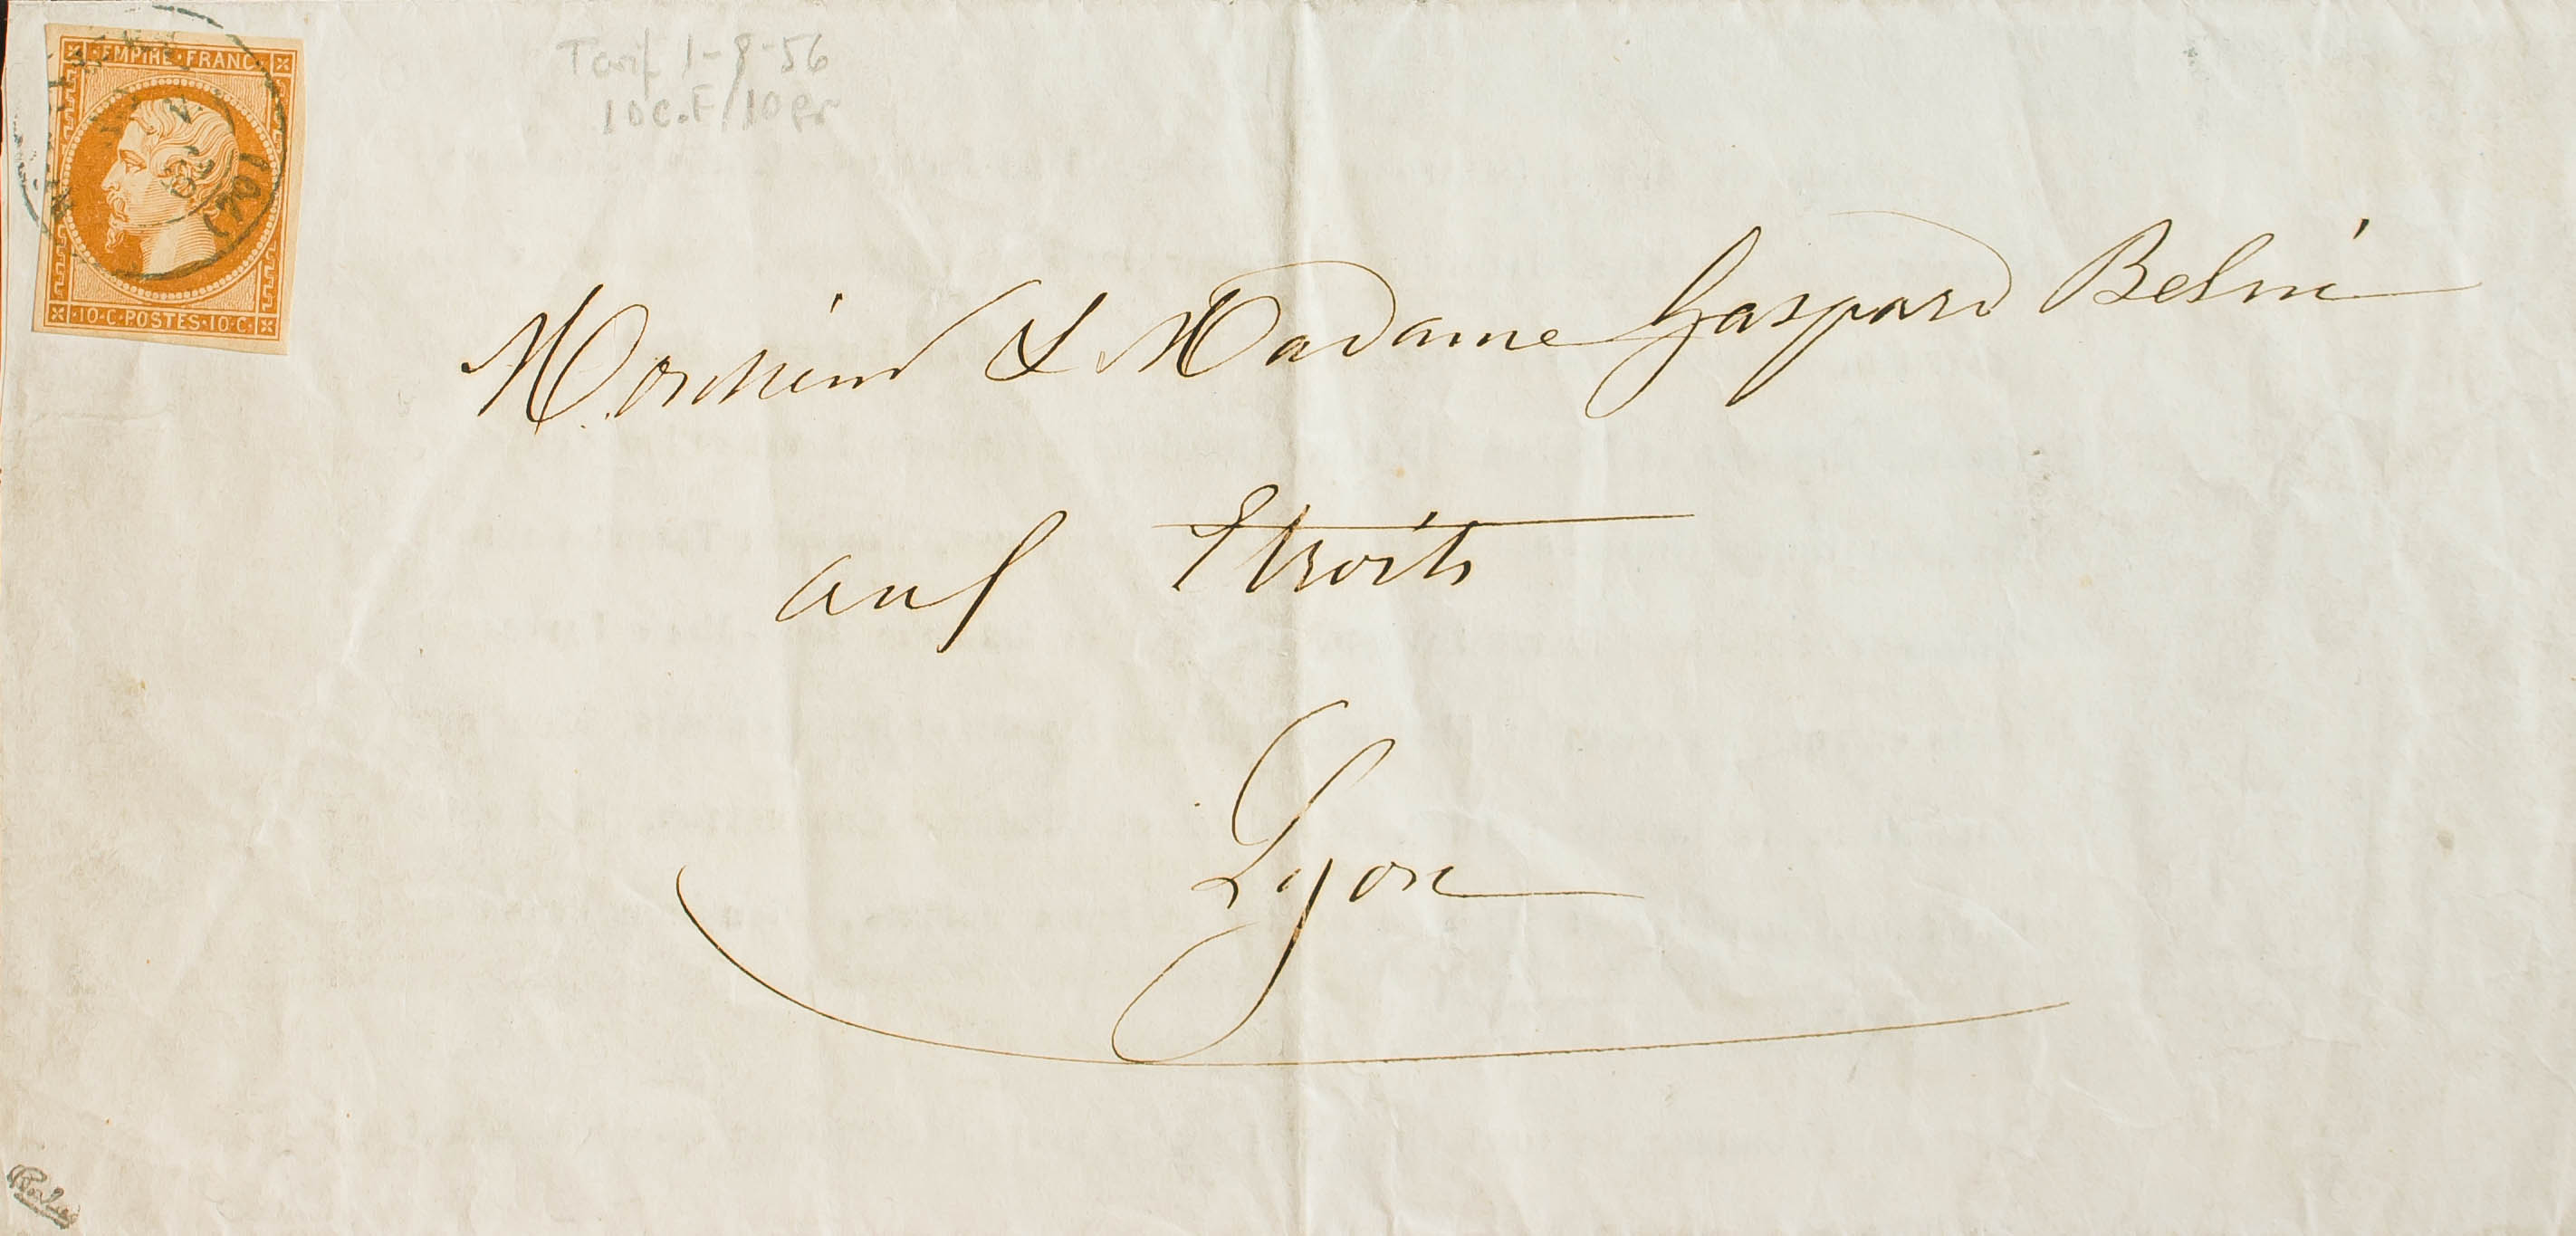 EMPIRE·FRANC·
(70)
·10·C·POSTES·10·C·
Tarif 1-8-56
10c.F/10gr
Monsieur & Madame Gaspard
aux Etroits
Lyon